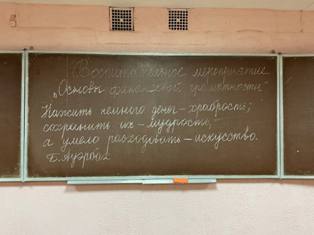 Воспитательное мероприятие
„Основы финансовой грамотности"
Нажить немного денег – храбрость;
сохранить их – мудрость,
а умело расходовать – искусство.
Б. Ауэрбах